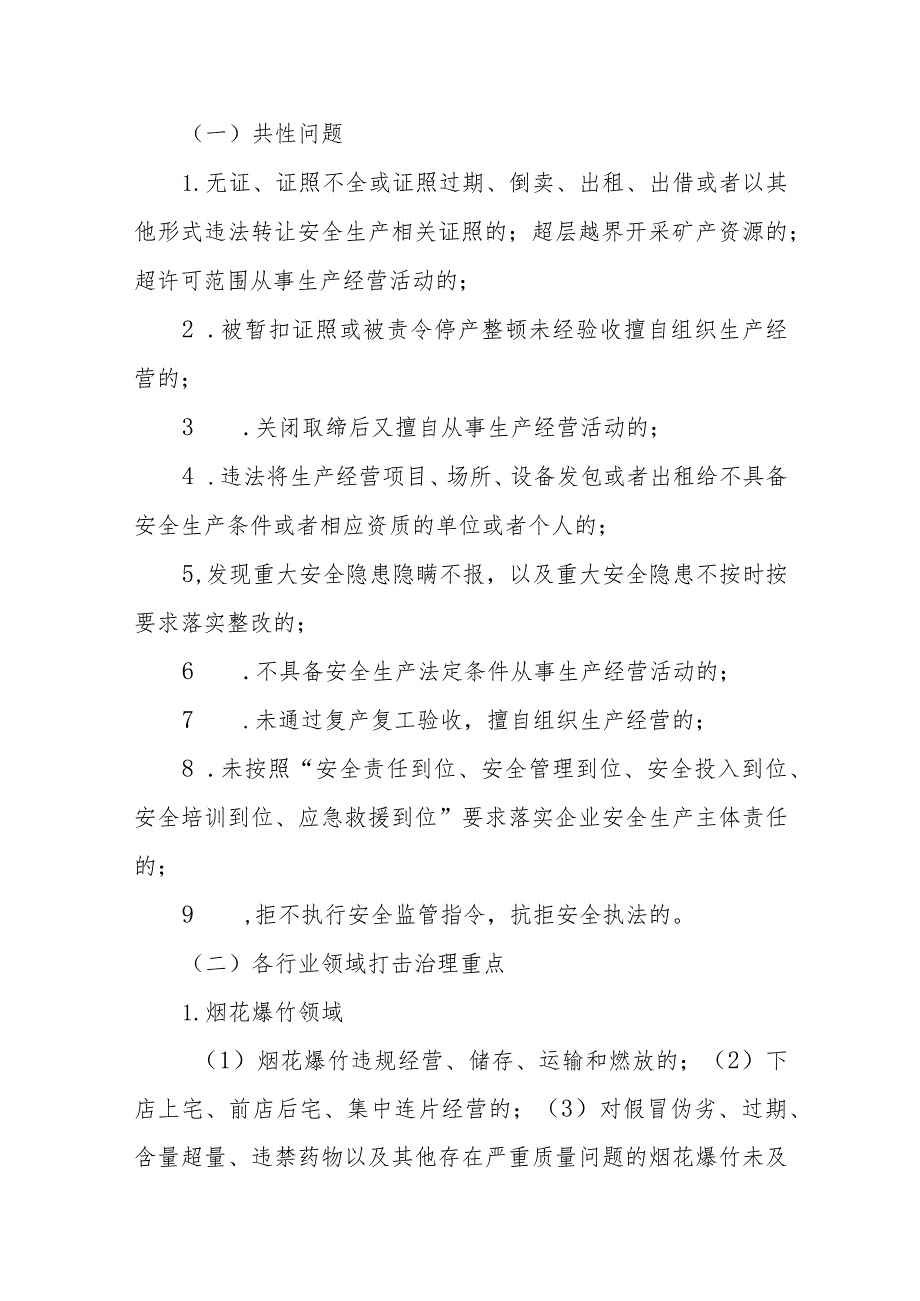 （一）共性问题
1.无证、证照不全或证照过期、倒卖、出租、出借或者以其
他形式违法转让安全生产相关证照的；超层越界开采矿产资源的；
超许可范围从事生产经营活动的；
2 .被暂扣证照或被责令停产整顿未经验收擅自组织生产经
营的；
3 .关闭取缔后又擅自从事生产经营活动的；
4 .违法将生产经营项目、场所、设备发包或者出租给不具备
安全生产条件或者相应资质的单位或者个人的；
5,发现重大安全隐患隐瞒不报，以及重大安全隐患不按时按
要求落实整改的；
6 .不具备安全生产法定条件从事生产经营活动的；
7 .未通过复产复工验收，擅自组织生产经营的；
8 .未按照“安全责任到位、安全管理到位、安全投入到位、
安全培训到位、应急救援到位”要求落实企业安全生产主体责任
的；
9 ,拒不执行安全监管指令，抗拒安全执法的。
（二）各行业领域打击治理重点
1.烟花爆竹领域
（1）烟花爆竹违规经营、储存、运输和燃放的；（2）下
店上宅、前店后宅、集中连片经营的；（3）对假冒伪劣、过期、
含量超量、违禁药物以及其他存在严重质量问题的烟花爆竹未及